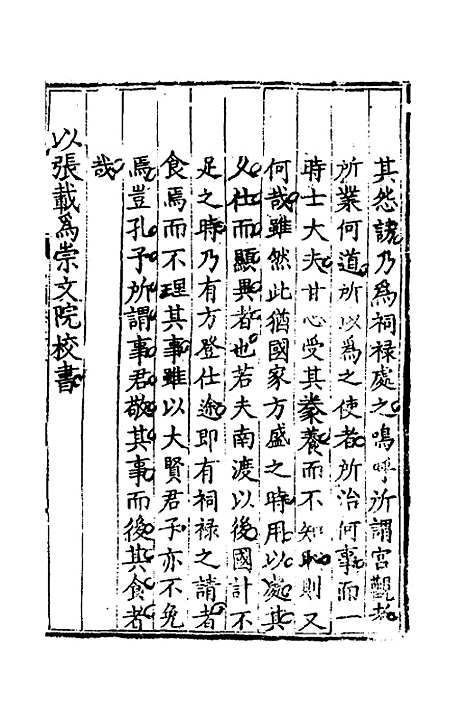 其怨謗乃爲祠祿處之鳴呼所謂宮觀者
所業何道所以爲之使者所治何事而一
時士大夫甘心受其豢養而不知恥則又
何哉雖然此猶國家方盛之時用以處其
久仕而顯異者也若夫南渡以後國計不
足之時乃有方登仕途即有祠祿之請者
食焉而不理其事雖以大賢君子亦不免
焉豈孔子所謂事君敬其事而後其食者
哉
以張載爲崇文院校書